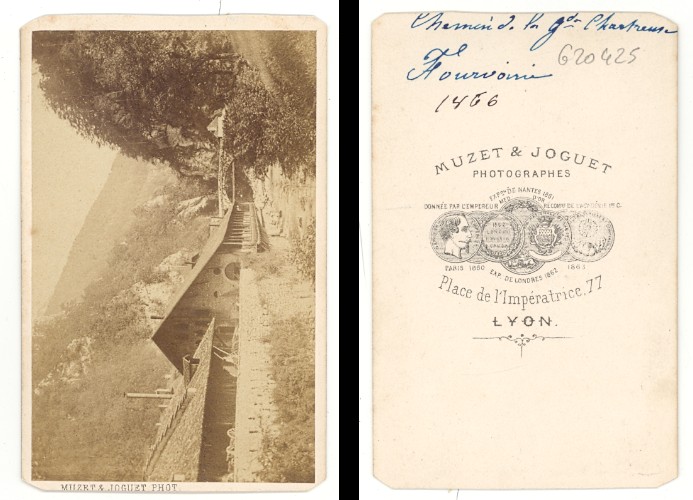 MUZET & JOGUET PHOT.
Chemin d. la gde Chartreuse
620425
Fourvoirie
1466
MUZET & JOGUET
PHOTOGRAPHES
EXPon DE NANTES 1861
DONNÉE PAR L'EMPEREUR
MED. D'OR
PARIS 1860
EXP. DE LONDRES 1862
1863
Place de l'Impératrice, 77
LYON.